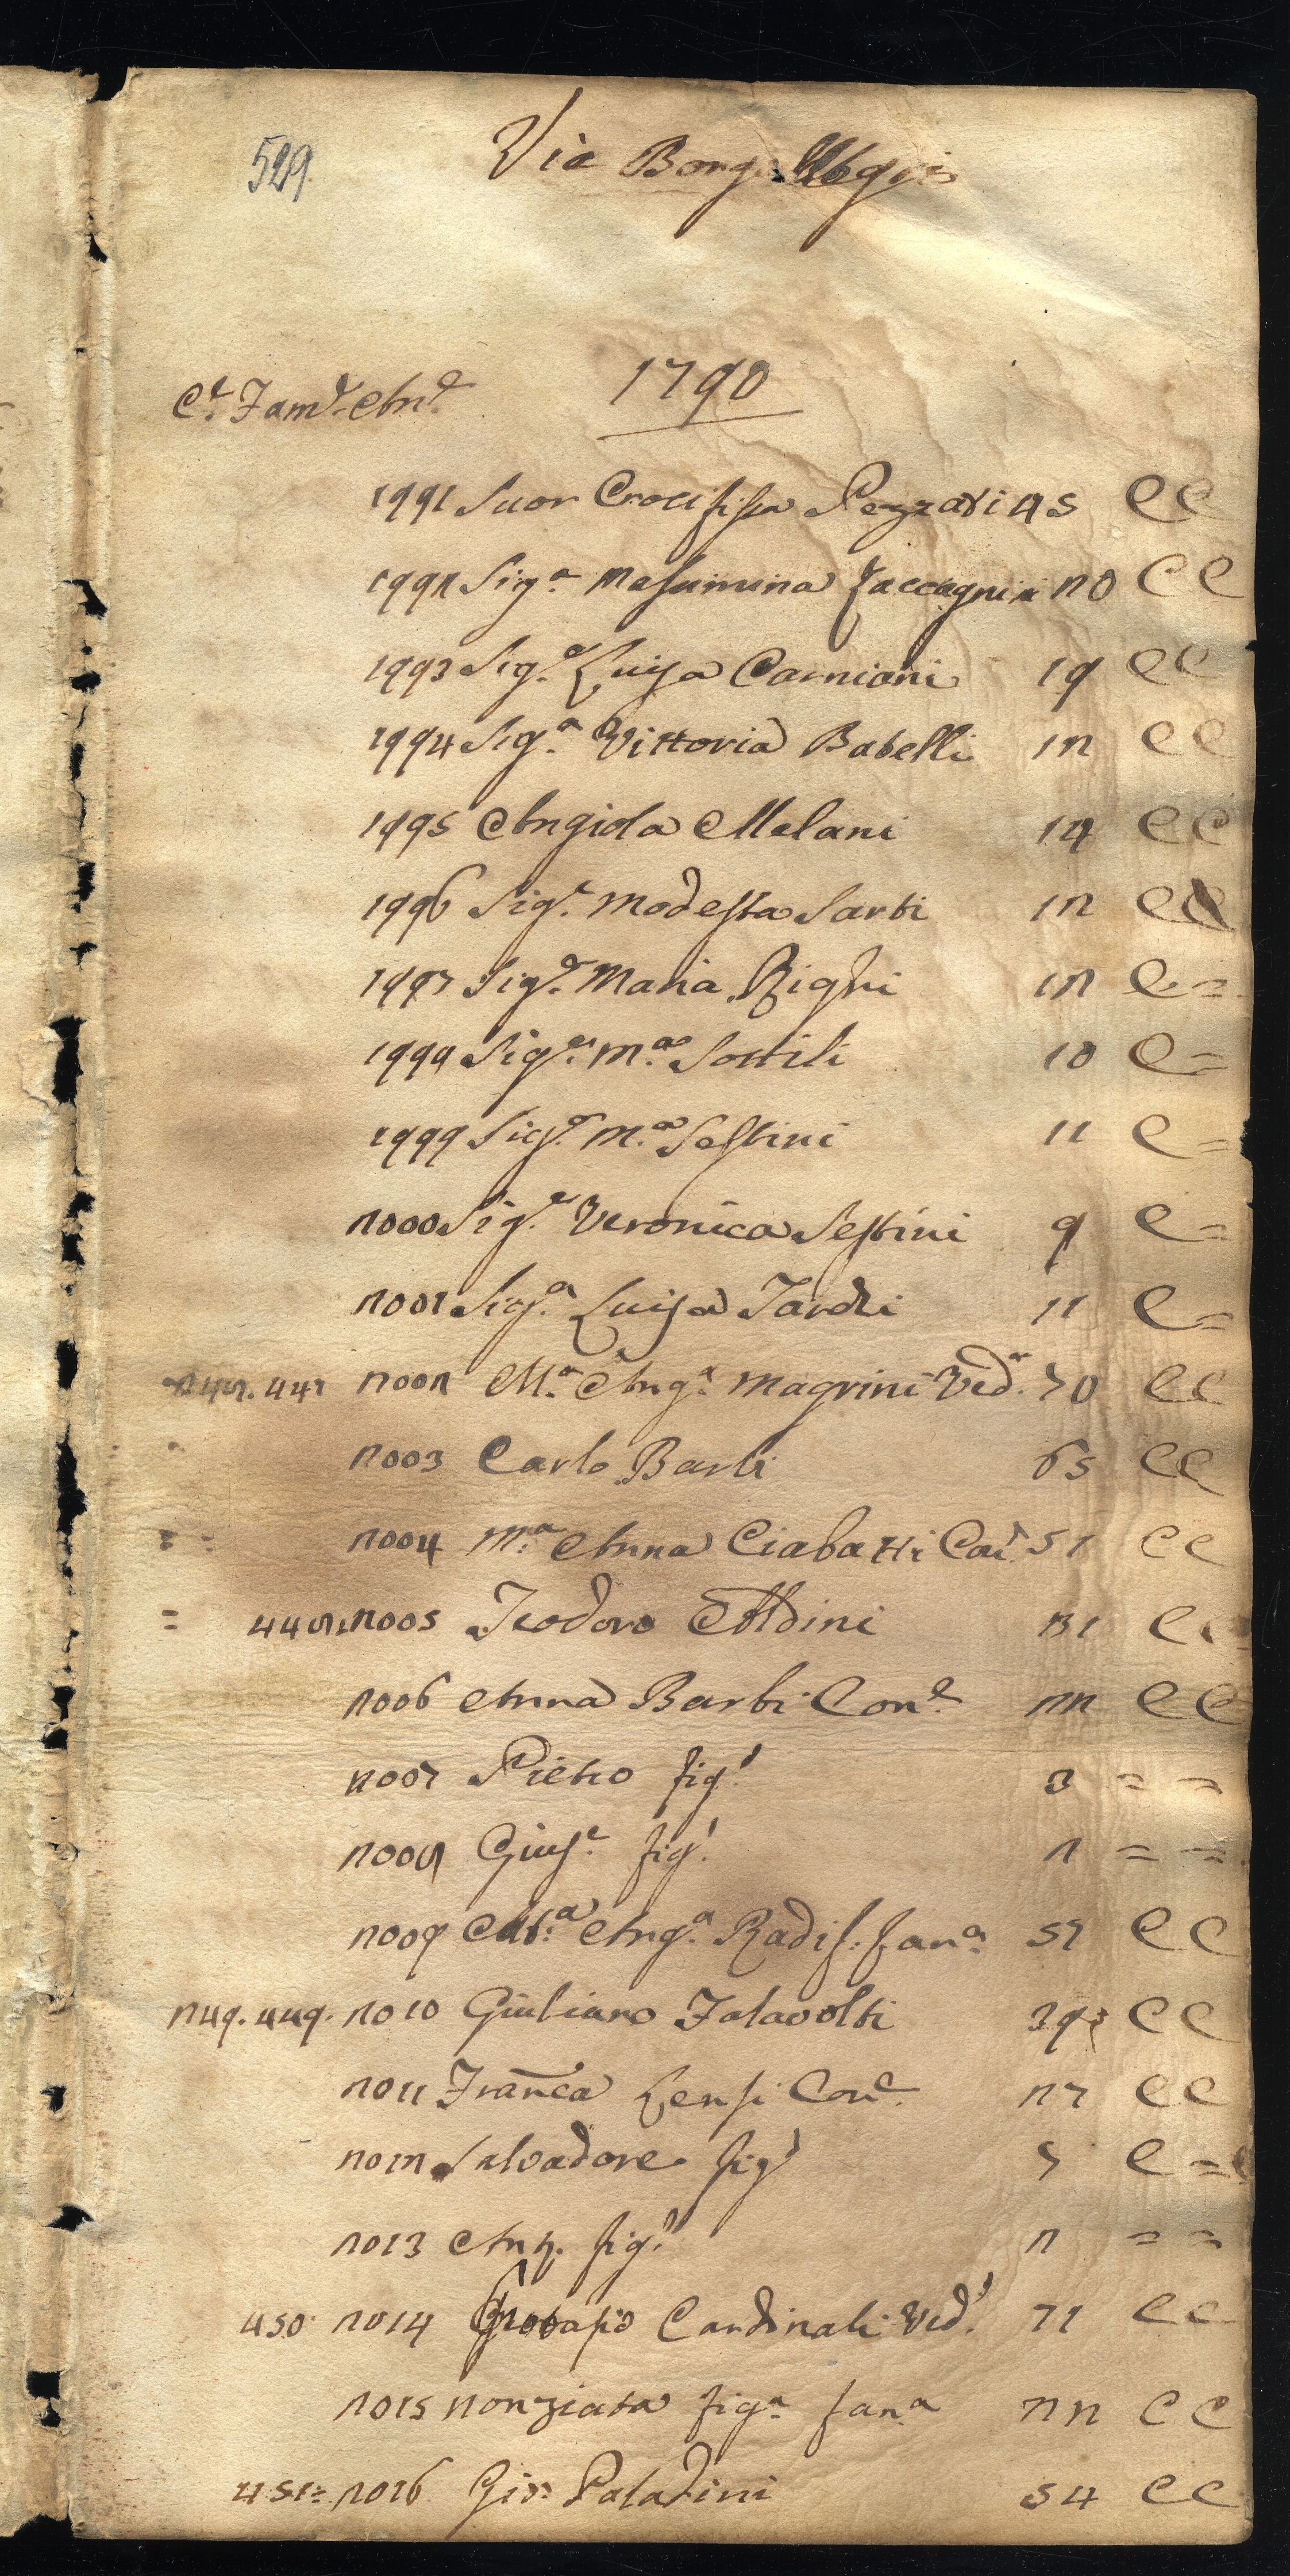 529.
Via Borgo
1790
Ce. Fame. Ane.
1991 Suor Crocifissa Pezzati 45 C C
1992 Siga. Massimina Zaccagnini 20 C C
1993 Siga. Luisa Carniani 19 C C
1994 Siga. Vittoria Babelli 12 C C
1995 Angiola Melani 14 C C
1996 Siga. Modesta Sarti 12 C C
1997 Siga. Maria Righi 12 C =
1998 Siga. Ma. Sostili 10 C =
1999 Siga. Ma. Sestini 11 C =
2000 Siga. Veronica Sestini 9 C =
2001 Siga. Luisa Tardi 11 C =
447 2002 Ma. Anga. Magrini Veda. 70 C C
2003 Carlo Barbi 65 C C
= = 2004 Ma. Anna Ciabatti Con. 51 C C
= 448. 2005 Teodoro Aldini 31 C C
2006 Anna Barbi Cone. 22 C C
2007 Pietro figo. 3 = =
2008 Giuse. figo. 2 = =
2009 Anga. Radis. fana. 57 C C
249. 449. 2010 Giuliano Talavolti 39 C C
2011 Franca Lensi Cone. 27 C C
2012 Salvadore figo 5 C =
2013 Ant. figo. 2 = =
450 2014 Cardinali Vedo. 71 C C
2015 Nonziata figa. fana. 22 C C
451 = 2016 Gio: Paladini 54 C C